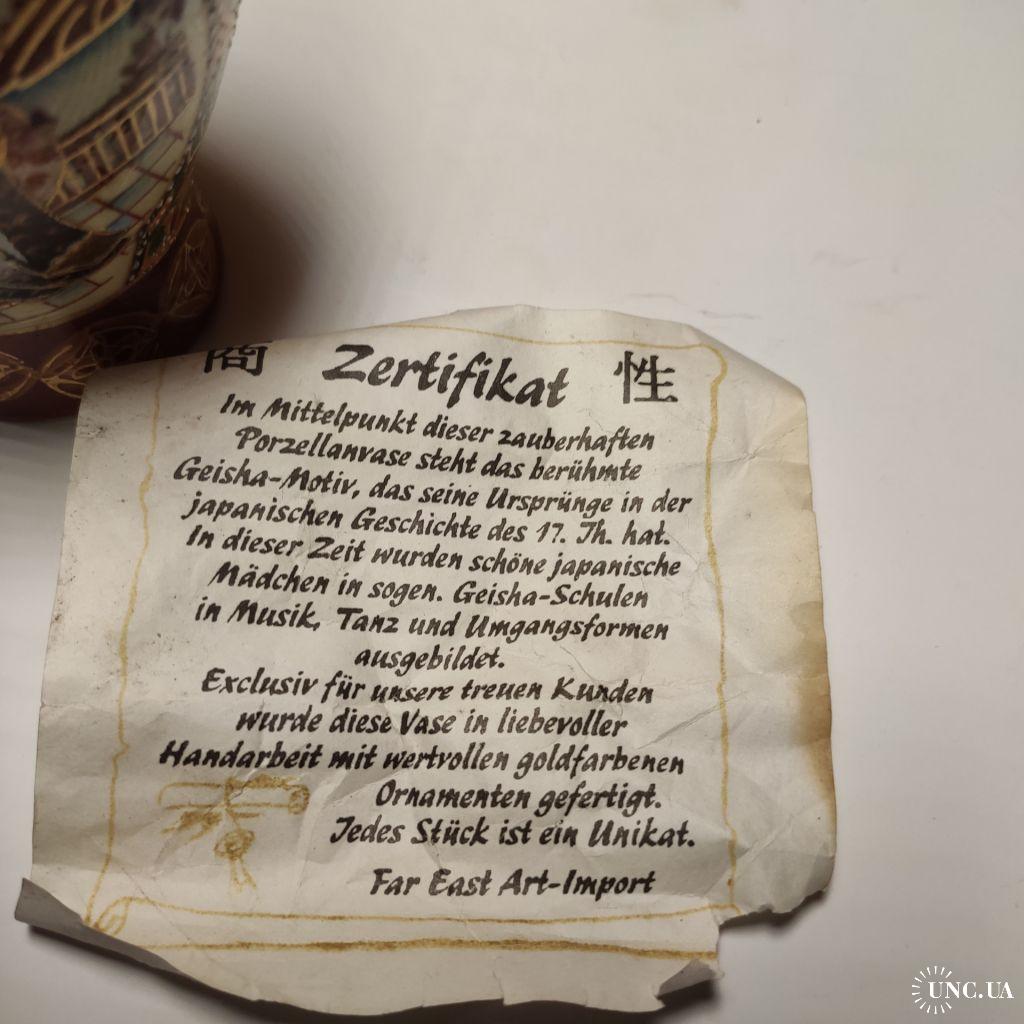 商 Zertifikat 性
Im Mittelpunkt dieser zauberhaften
Porzellanvase steht das berühmte
Geisha-Motiv, das seine Ursprünge in der
japanischen Geschichte des 17. Jh. hat.
In dieser Zeit wurden schöne japanische
Mädchen in sogen. Geisha-Schulen
in Musik, Tanz und Umgangsformen
ausgebildet.
Exclusiv für unsere treuen Kunden
wurde diese Vase in liebevoller
Handarbeit mit wertvollen goldfarbenen
Ornamenten gefertigt.
Jedes Stück ist ein Unikat.
Far East Art-Import
UNC.UA